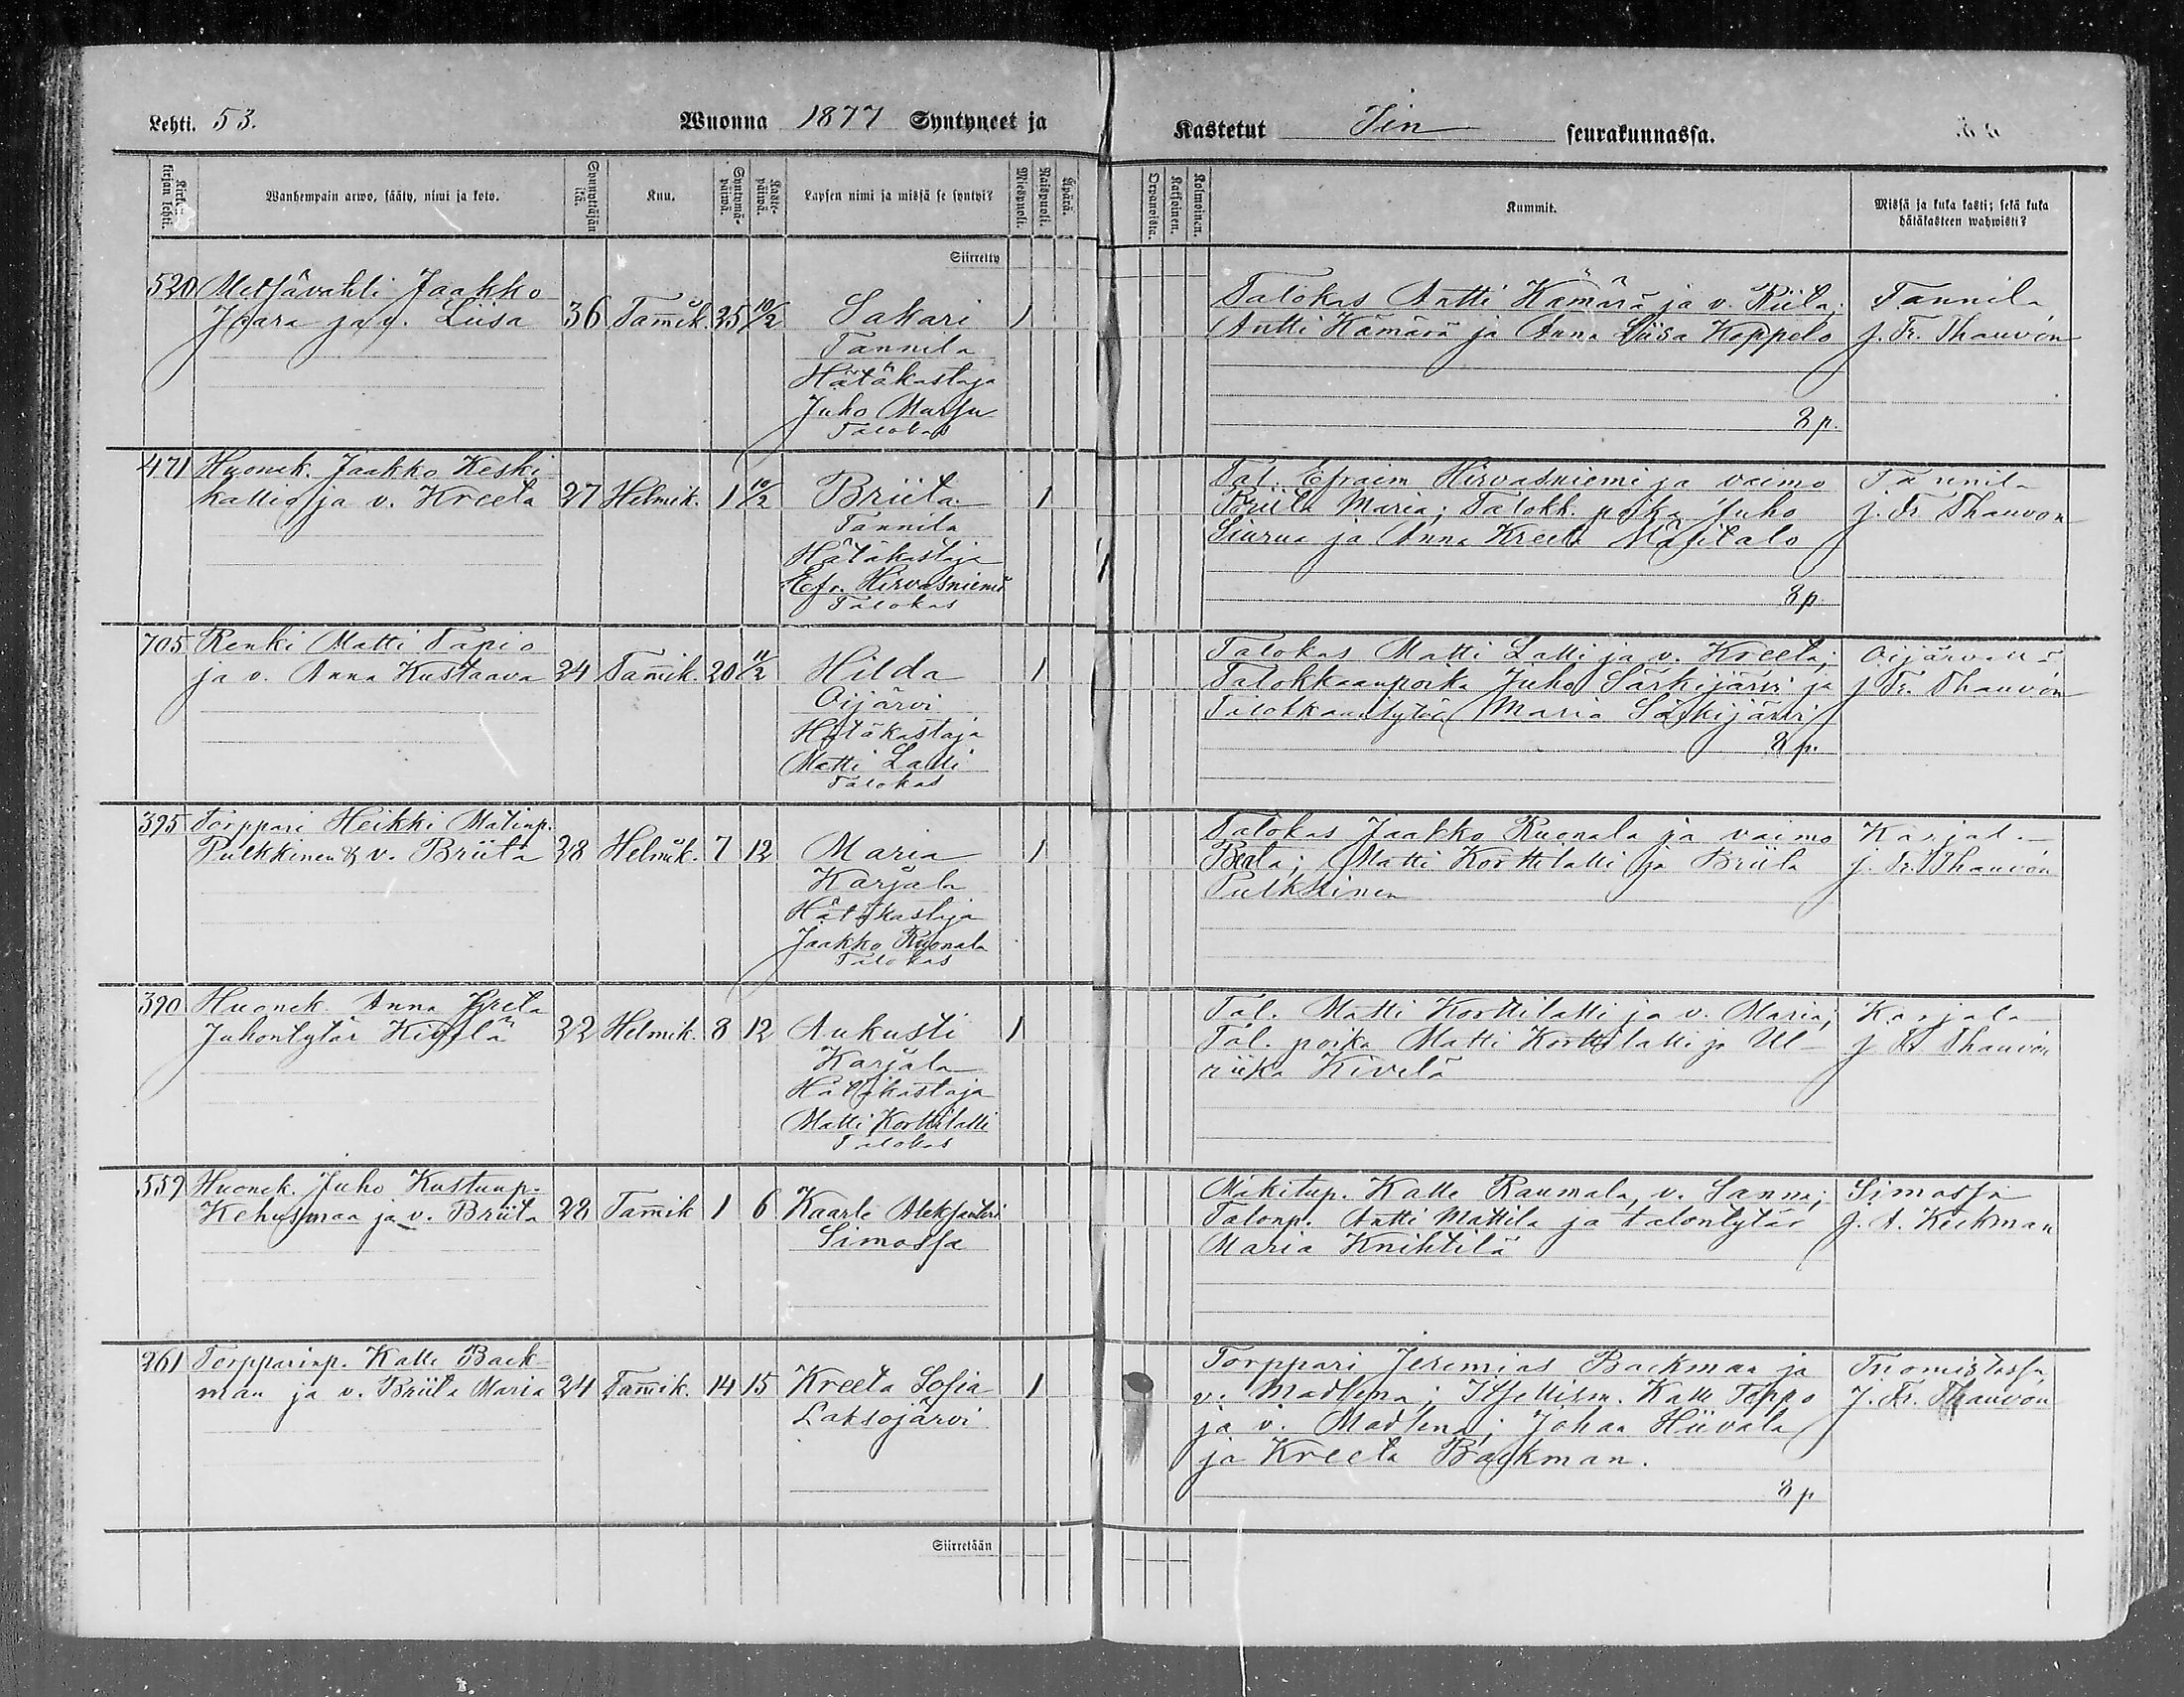 Lehti. 53.
Wuonna 1877 Syntyneet ja
Kastetut Iin seurakunnassa.
Kirkonkirjan lehti.
Wanhempain arwo, sääty, nimi ja koto.
Synnyttäjän ikä.
Kuu.
Syntymäpäiwä.
Kastepäiwä.
Lapsen nimi ja missä se syntyi?
Miespuoli.
Naispuoli.
Äpärä.
Orpanoista.
Kaksoinen.
Kolmoinen.
Kummit.
Missä ja kuka kasti; sekä kuka
hätäkasteen wahwisti?
Siirretty
520 Metsävahti Jaakko
Jaara ja v. Liisa 36 Tam̄ik. 25 10/2 Sakari 1
Tannila
Hätäkastaja
Juho Marsu
Talokas
Talokas Antti Kämärä ja v. Riita;
Antti Kämärä ja Anna Liisa Koppelo
8 p.
Tannila
J. Fr. Thauvón
471 Huonek. Jaakko Keski
kallio ja v. Kreeta 27 Helmik. 1 10/2 Briita 1
Tannila
Hätäkastaja
Efr. Hirvasniemi
Talokas
Tal. Efraim Hirvasniemi ja vaimo
Briita Maria; Talokk. poika Juho
Siurua ja Anna Kreeta Mäsitalo
8 p.
Tannila
J. Fr. Thauvón
705 Renki Matti Tapio
ja v. Anna Kustaava 24 Tam̄ik. 20 11/2 Hilda 1
Oijärvi
Hätäkastaja
Matti Lalli
Talokas
Talokas Matti Lalli ja v. Kreeta;
Talokkaanpoika Juho Särkijärvi ja
Talokkaantytär Maria Särkijärvi
8 p.
Oijärvellä
J. Fr. Thauvón
395 Torppari Heikki Matinp.
Pulkkinen & v. Briita 28 Helmik. 7 12 Maria 1
Karjala
Hätäkastaja
Jaakko Ruonala
Talokas
Talokas Jaakko Ruonala ja vaimo
Beata; Matti Korttilalli ja Briita
Pulkkinen
Karjala
J. Fr. Thauvón
390 Huonek. Anna Greta
Juhontytär Kivelä 22 Helmik. 8 12 Aukusti 1
Karjala
Hätäkastaja
Matti Korttilalli
Talokas
Tal. Matti Korttilalli ja v. Maria;
Tal. poika Matti Korttilalli ja Ul
riika Kivelä
Karjala
J. Fr. Thauvón
559 Huonek. Juho Kustunp.
Kehusmaa ja v. Briita 28 Tam̄ik 1 6 Kaarle Aleksanteri
Simossa
Mäkitup. Kalle Raumala, v. Sanna;
Talonp. Antti Mattila ja talontytär
Maria Knihtilä
Simossa
J. A. Keckman
261 Torpparinp. Kalle Back
man ja v. Briita Maria 24 Tam̄ik. 14 15 Kreeta Sofia 1
Laksojärvi
Torppari Jeremias Backman ja
v. Madlena; Itsellism. Kalle Toppo
ja v. Madlena; Johan Hiivala
ja Kreeta Backman.
8 p
J. Fr. Thauvón
Siirretään